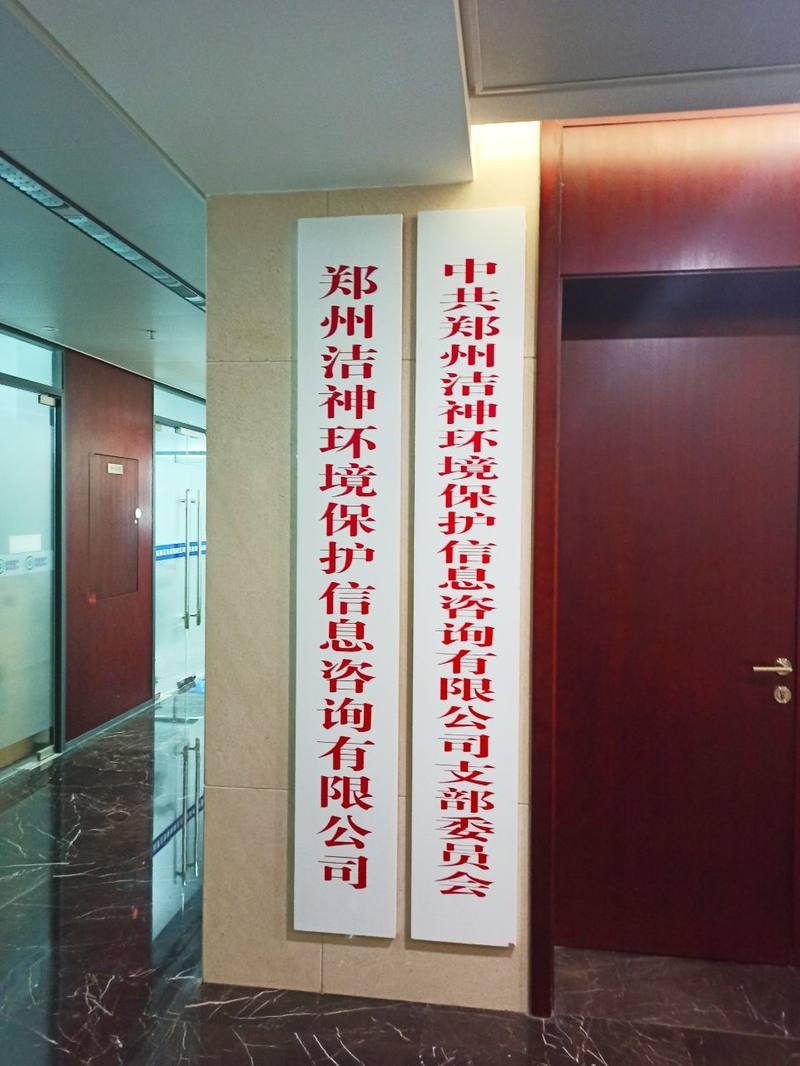 郑州洁神环境保护信息咨询有限公司
中共郑州洁神环境保护信息咨询有限公司支部委员会